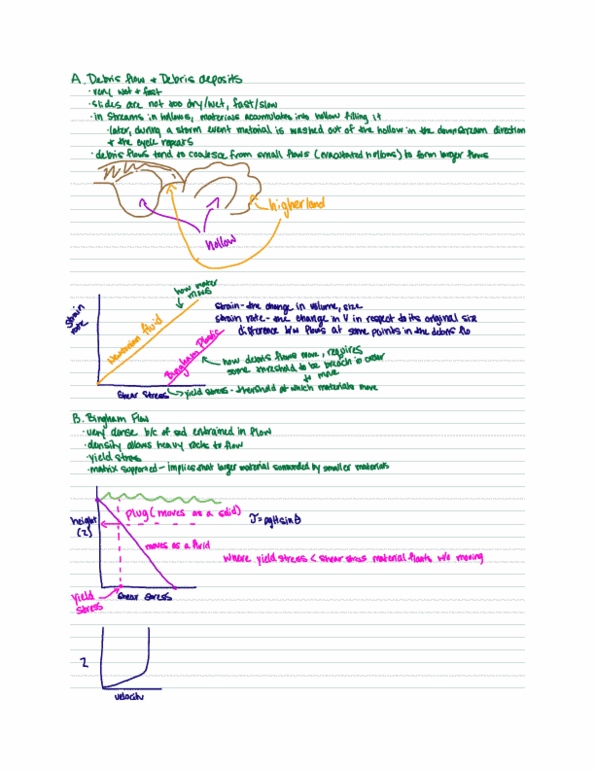 A. Debris flow + Debris deposits
· very wet + fast
· slides are not too dry/wet, fast/slow
· in streams in hollows, materials accumulates into hollow filling it
· later, during a storm event material is washed out of the hollow in the downstream direction
+ the cycle repeats
· debris flows tend to coalesce from small flows (evacuated hollows) to form larger flows
higher land
hollow
how water moves
strain rate
Newtonian fluid
Bingham Plastic
Shear Stress
strain - the change in volume, size
strain rate - the change in V in respect to its original size
difference b/w flows at some points in the debris flo
how debris flows move, requires
some threshold to be breach in order
to move
yield stress - threshold at which materials move
B. Bingham Flow
· very dense b/c of sed entrained in flow
· density allows heavy rocks to flow
· yield stress
· matrix supported - implies that larger material surrounded by smaller materials
height
(z)
plug (moves as a solid)
τ=ρgHsinθ
moves as a fluid
where yield stress < shear stress material floats w/o moving
yield
stress
shear stress
z
velocity